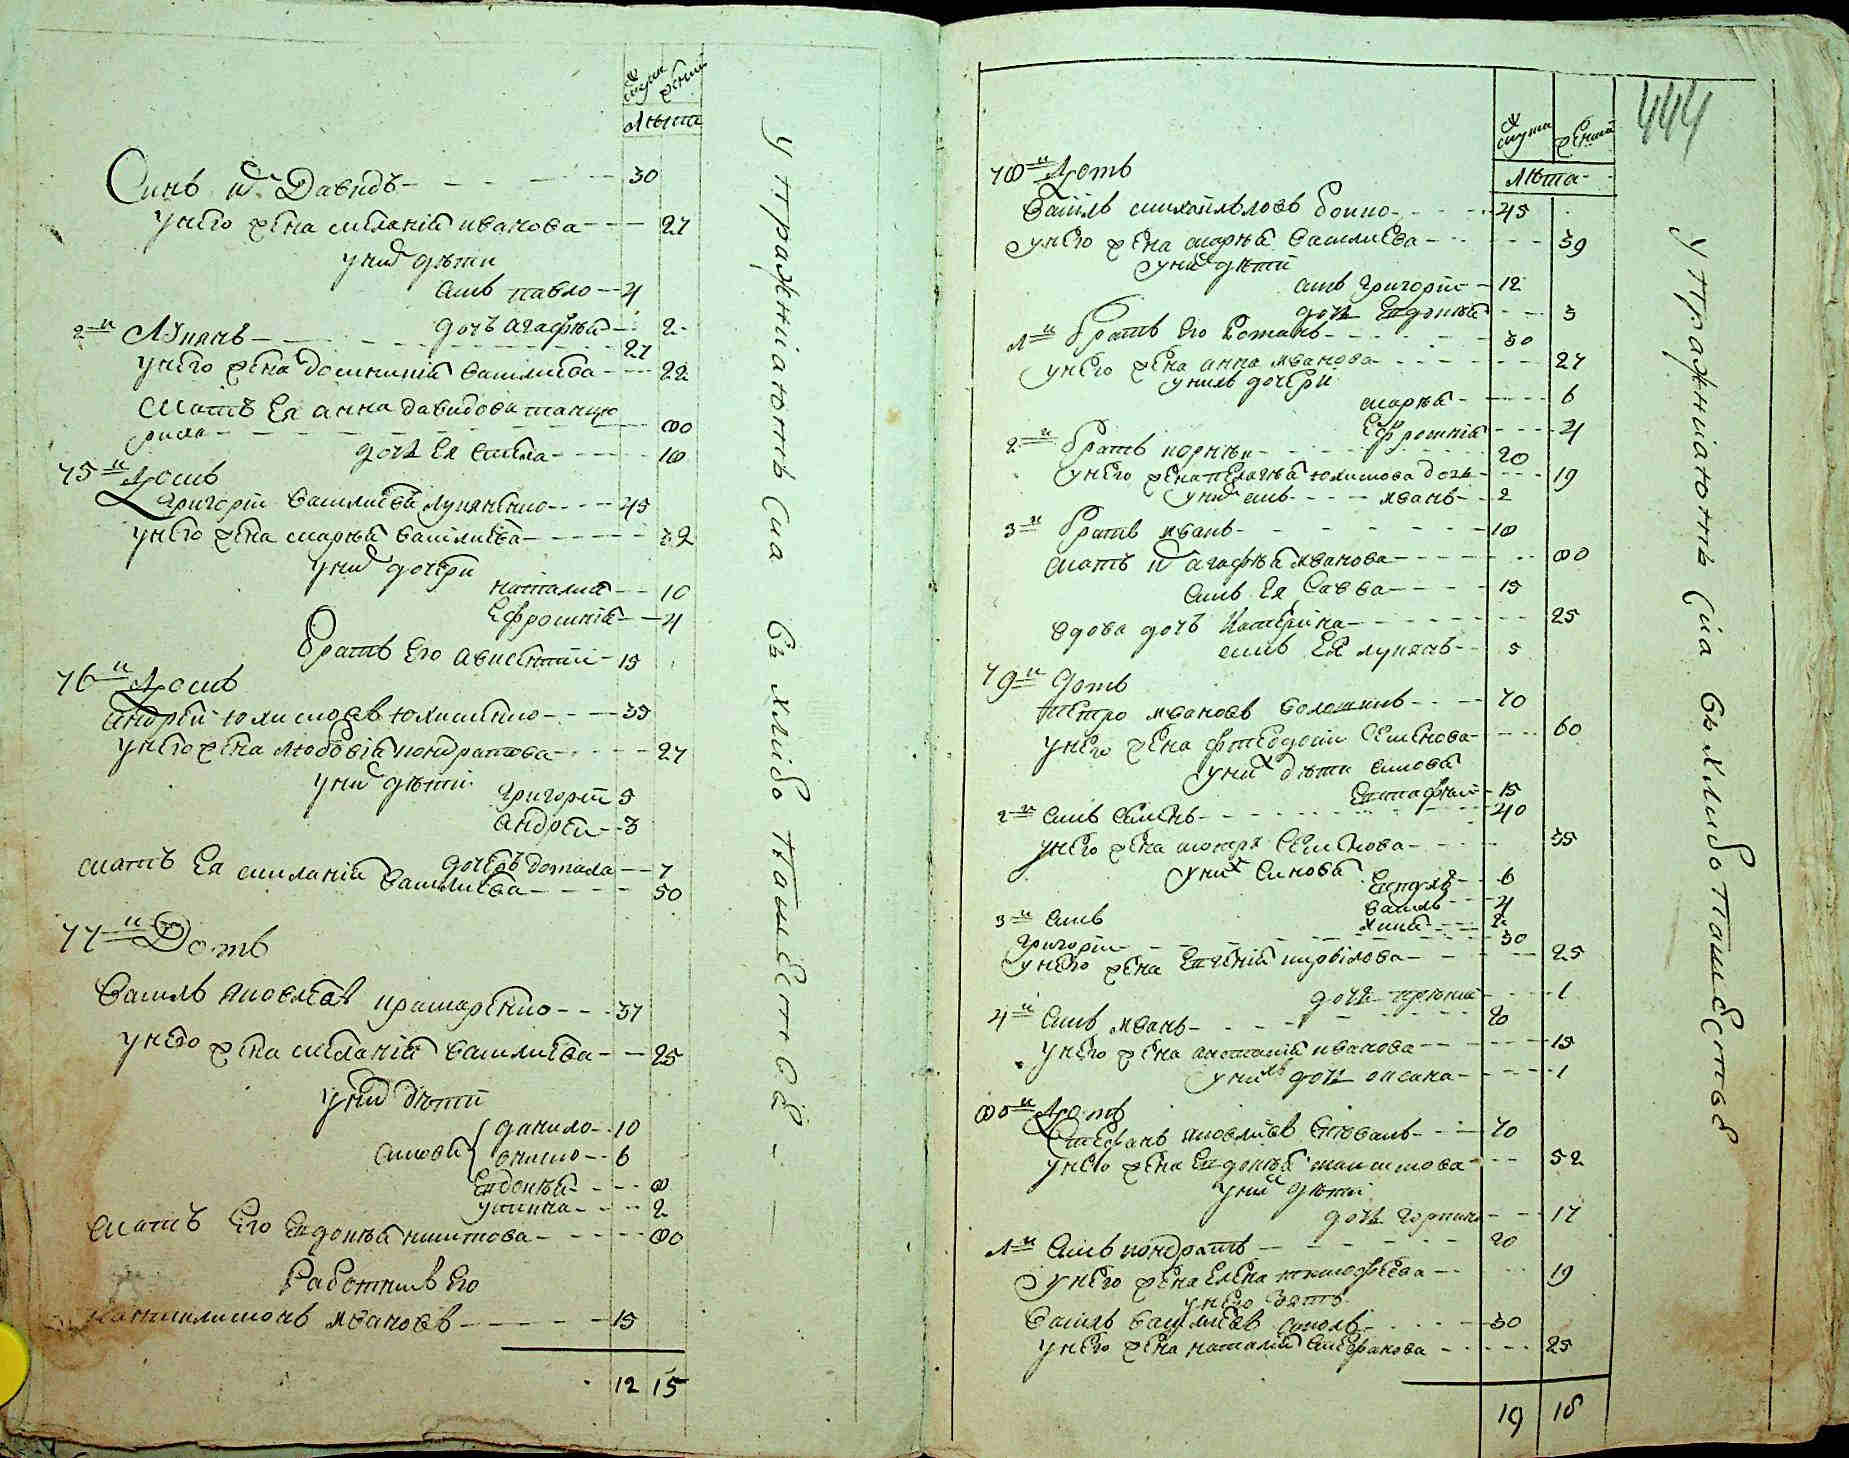 муж женс
Лѣта
Синъ их Давидъ - - - 30
у него жена меланія иванова - - - 27
у них дѣти
синъ павло - 4
дочъ агафія - 2
2й Лукянъ - - - 27
у него жена домникія василиева - - - 22
Мать Ея анна давидова танцю
рина - - - 80
дочь Ея - - - 18
75й Домъ
Григорій василиевъ лукяненко - - - 45
у него жена марія василиева - - - 32
у них дочери
наталія - - 10
Ефросинія - - 4
братъ Его авксентій - 15
76й Домъ
андрей юхимовъ юхименко - - - 35
у него жена любовія кондратова - - - 27
у них дѣти
Григорій 5
андрей - - 3
дочеръ домаха - - 7
мать Ея миланія василиева - - - 50
77й Домъ
василь яковлевъ - - - 37
у него жена меланія василиева - - 25
у них дѣти
синови данило - - 10
ониско - - 6
Евдокія - - - 8
устинка - - - 2
мать Его Евдокія никитова - - - 80
Работникъ Его
пантилимонъ ивановъ - - - 15
12 15
упражніаются въ хлібо пашестве
444
мужа женска
лѣта
78й Домъ
василь михайловъ бойко - - - 45
у него жена марія василиева - - - 39
у них дѣти
синъ григорій - 12
дочь Евдокія - - 3
1й братъ его Романъ - - - 30
у него жена анна иванова - - - 27
у нихъ дочери
марія - - - 6
Ефросинія - - - 4
2й братъ корнѣй - - - 20
у него жена пелагія юхимова дочь - - - 19
у них синъ - - - иванъ - - 2
3й братъ иванъ - - - 18
мать их агафія иванова - - - 80
синъ Ея Савва - - - 15
вдова дочъ Катерина - - - 25
синъ Ея лукянъ - - 5
79й Домъ
петро ивановъ волошинъ - - - 70
у него жена феодосія Семенова - - - 60
у них дѣти синовя
Евстафій - 15
2й синъ Семенъ - - - 40
у него жена мотря Семенова - - - 35
у них Синовя
- - 6
василь - - 4
- - 2
3й синъ
григорій - - - 30
у него жена Евгенія кирилова - - - 25
дочь - - - 1
4й синъ иванъ - - - 20
у него жена анастасія иванова - - - 15
у нихъ дочь оксана - - - 1
80й Домъ
Стефанъ яковлевъ - - - 70
у него жена Евдокія максимова - - - 52
у них дѣти
дочь горпина - - - 17
1й синъ кондратъ - - - 20
у него жена Елена тимофеева - - - 19
у него зять
василь василиевъ - - - 30
у него жена наталія стефанова - - - 25
19 18
упражніаются въ хлибо пашестве